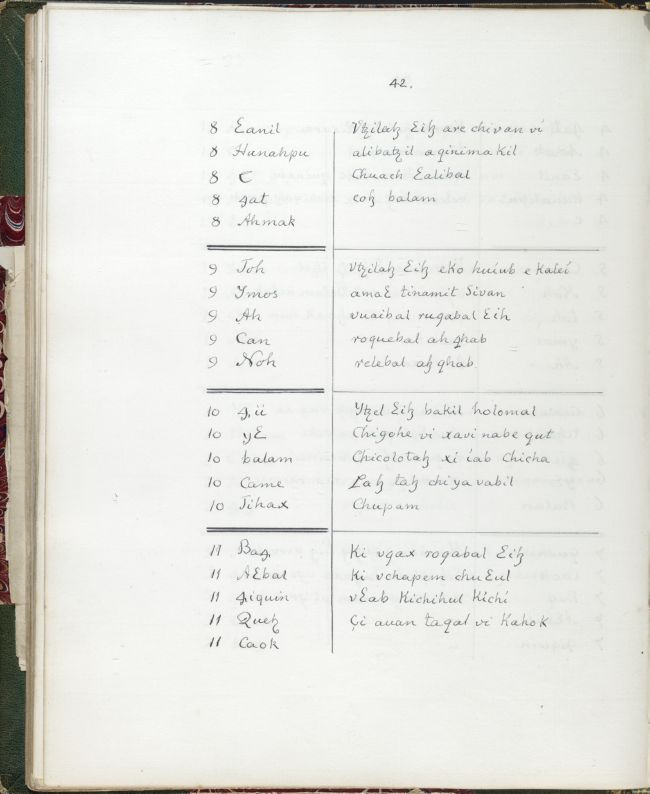 42.
8 Ɛanil Vtzilah Ɛih are chivan ví
8 Hunahpu alibatzil aqinimaKil
8 C Chuach Ɛalibal
8 ꜭat coh balam
8 Ahmak
9 Toh Vtzilah Ɛih eKo huíub e Kaleí
9 Ymos amaƐ tinamit Sivan
9 Ah vuaibal ruqabal Ɛih
9 Can roquebal ah qhab
9 Noh relebal ah qhab
10 ꜭ,ii Ytzel Ɛih bakil holomal
10 yƐ Chigohe vi xavi nabe qut
10 balam Chicolotah xi íab Chicha
10 Came Lah tah chi ya vabil
10 Tihax Chupam
11 Baꜭ Ki vqax roqabal Ɛih
11 AƐbal Ki vchapem chuƐul
11 ꜭiquin vƐab Kichihul Kíchí
11 Queh Çi auan taqal vi KahoK
11 Caok